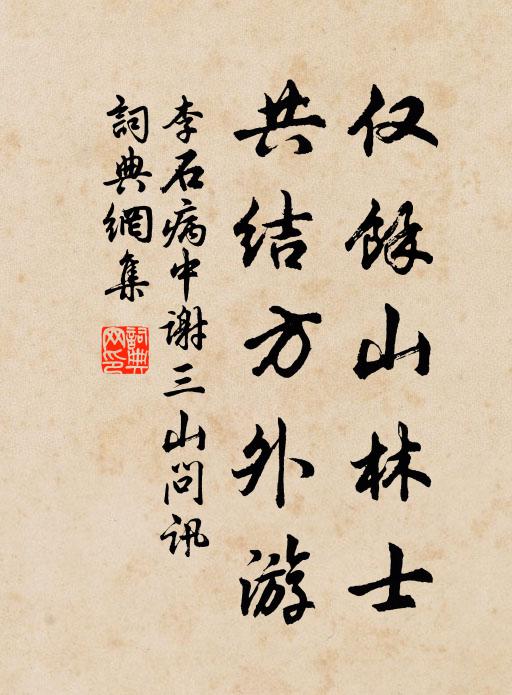 仅餘山林士
共结方外游
李石病中谢三山问讯
詞典網集
詞典网印